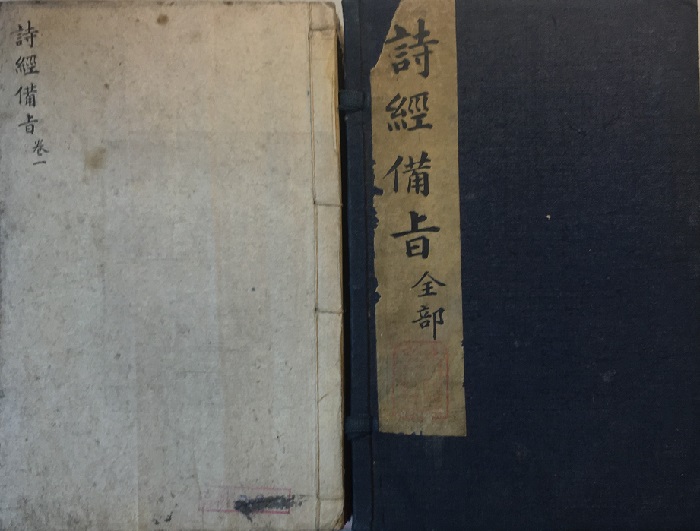 詩經備旨卷一
詩經備旨全部